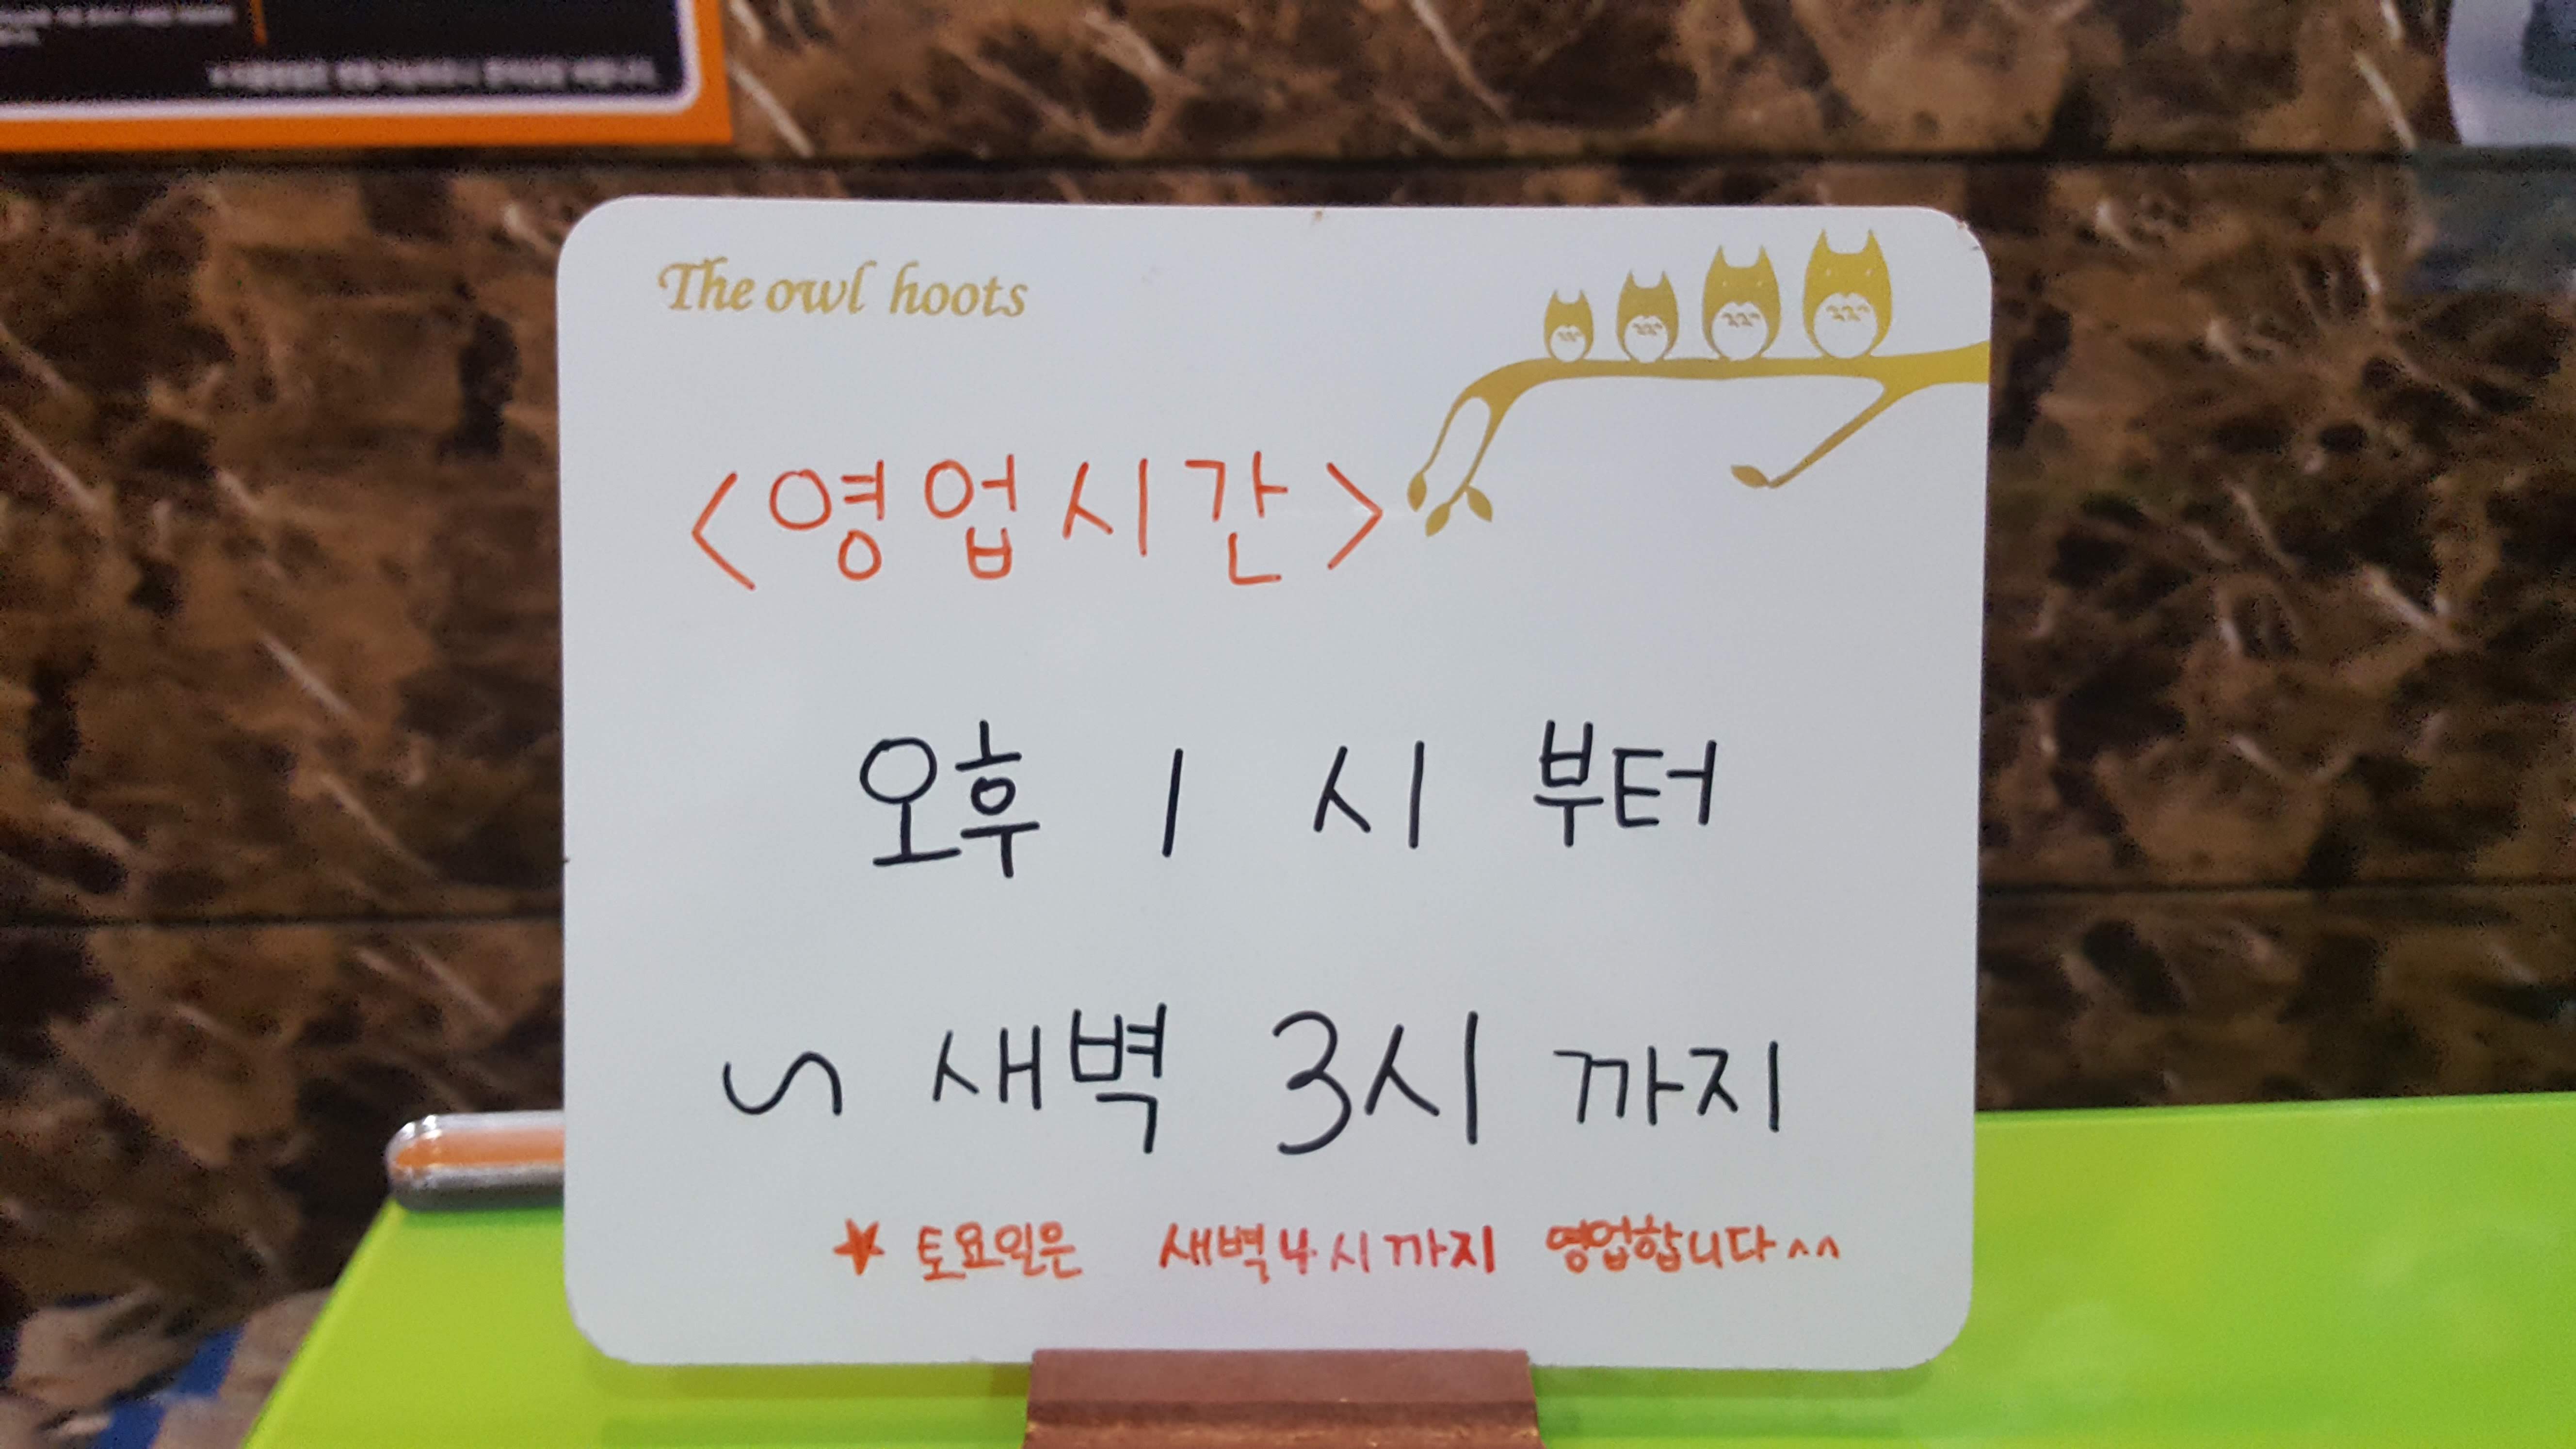 The owl hoots
<영업시간>
오후 1 시 부터
~ 새벽 3시 까지
★ 토요일은 새벽4시까지 영업합니다^^